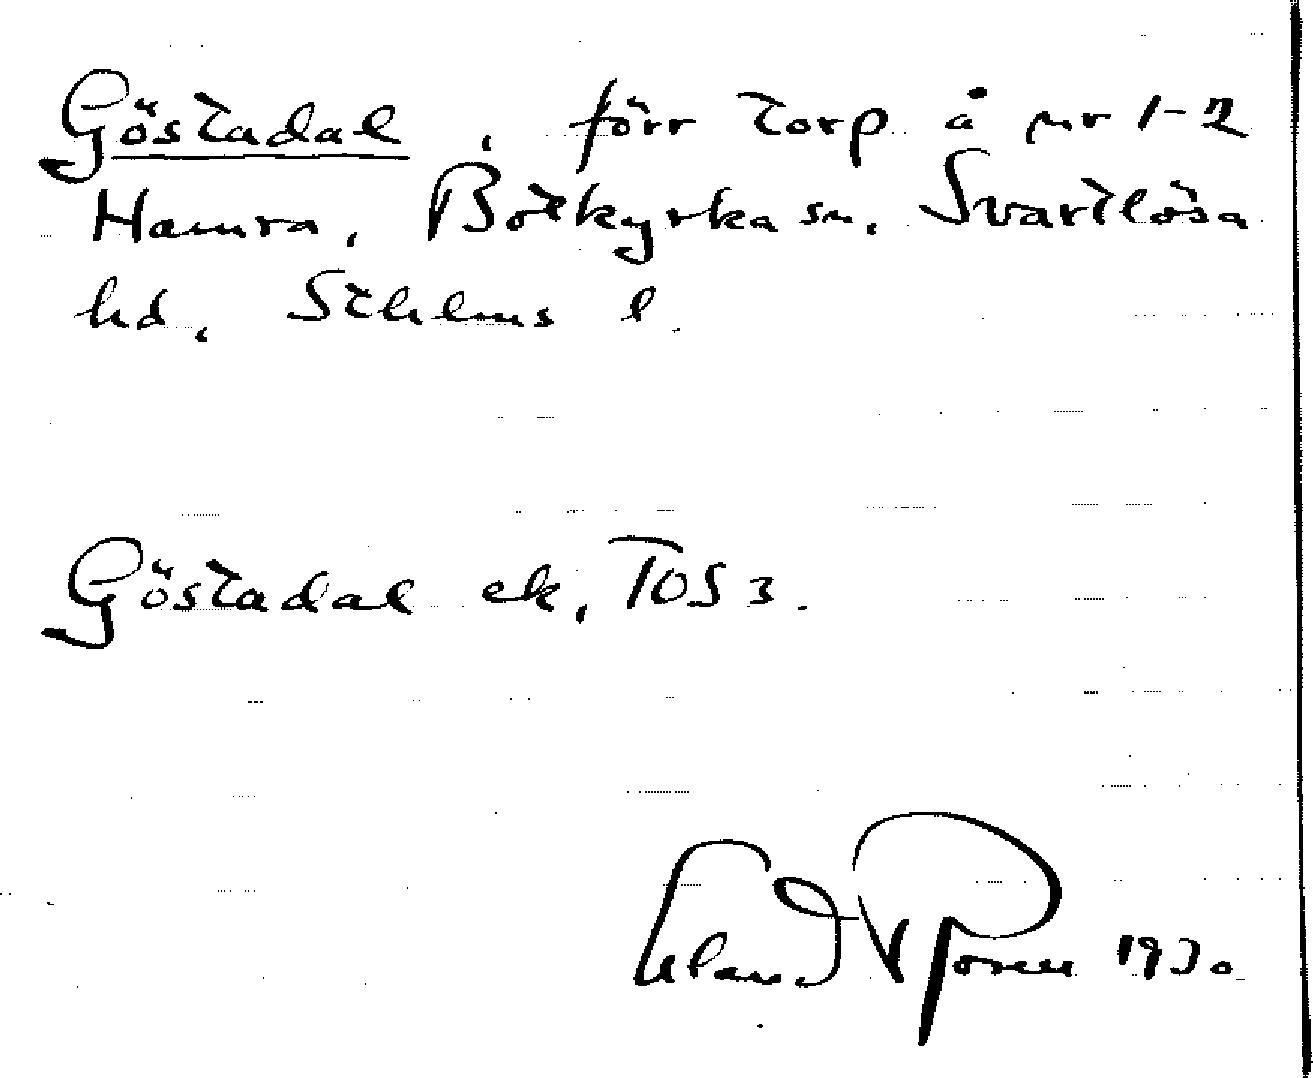 Göstadal, förr torp å nr 1-2
Hamra, Botkyrka sn, Svartlösa
hd, Sthlms l.
Göstadal ek, TOS 3.
1930